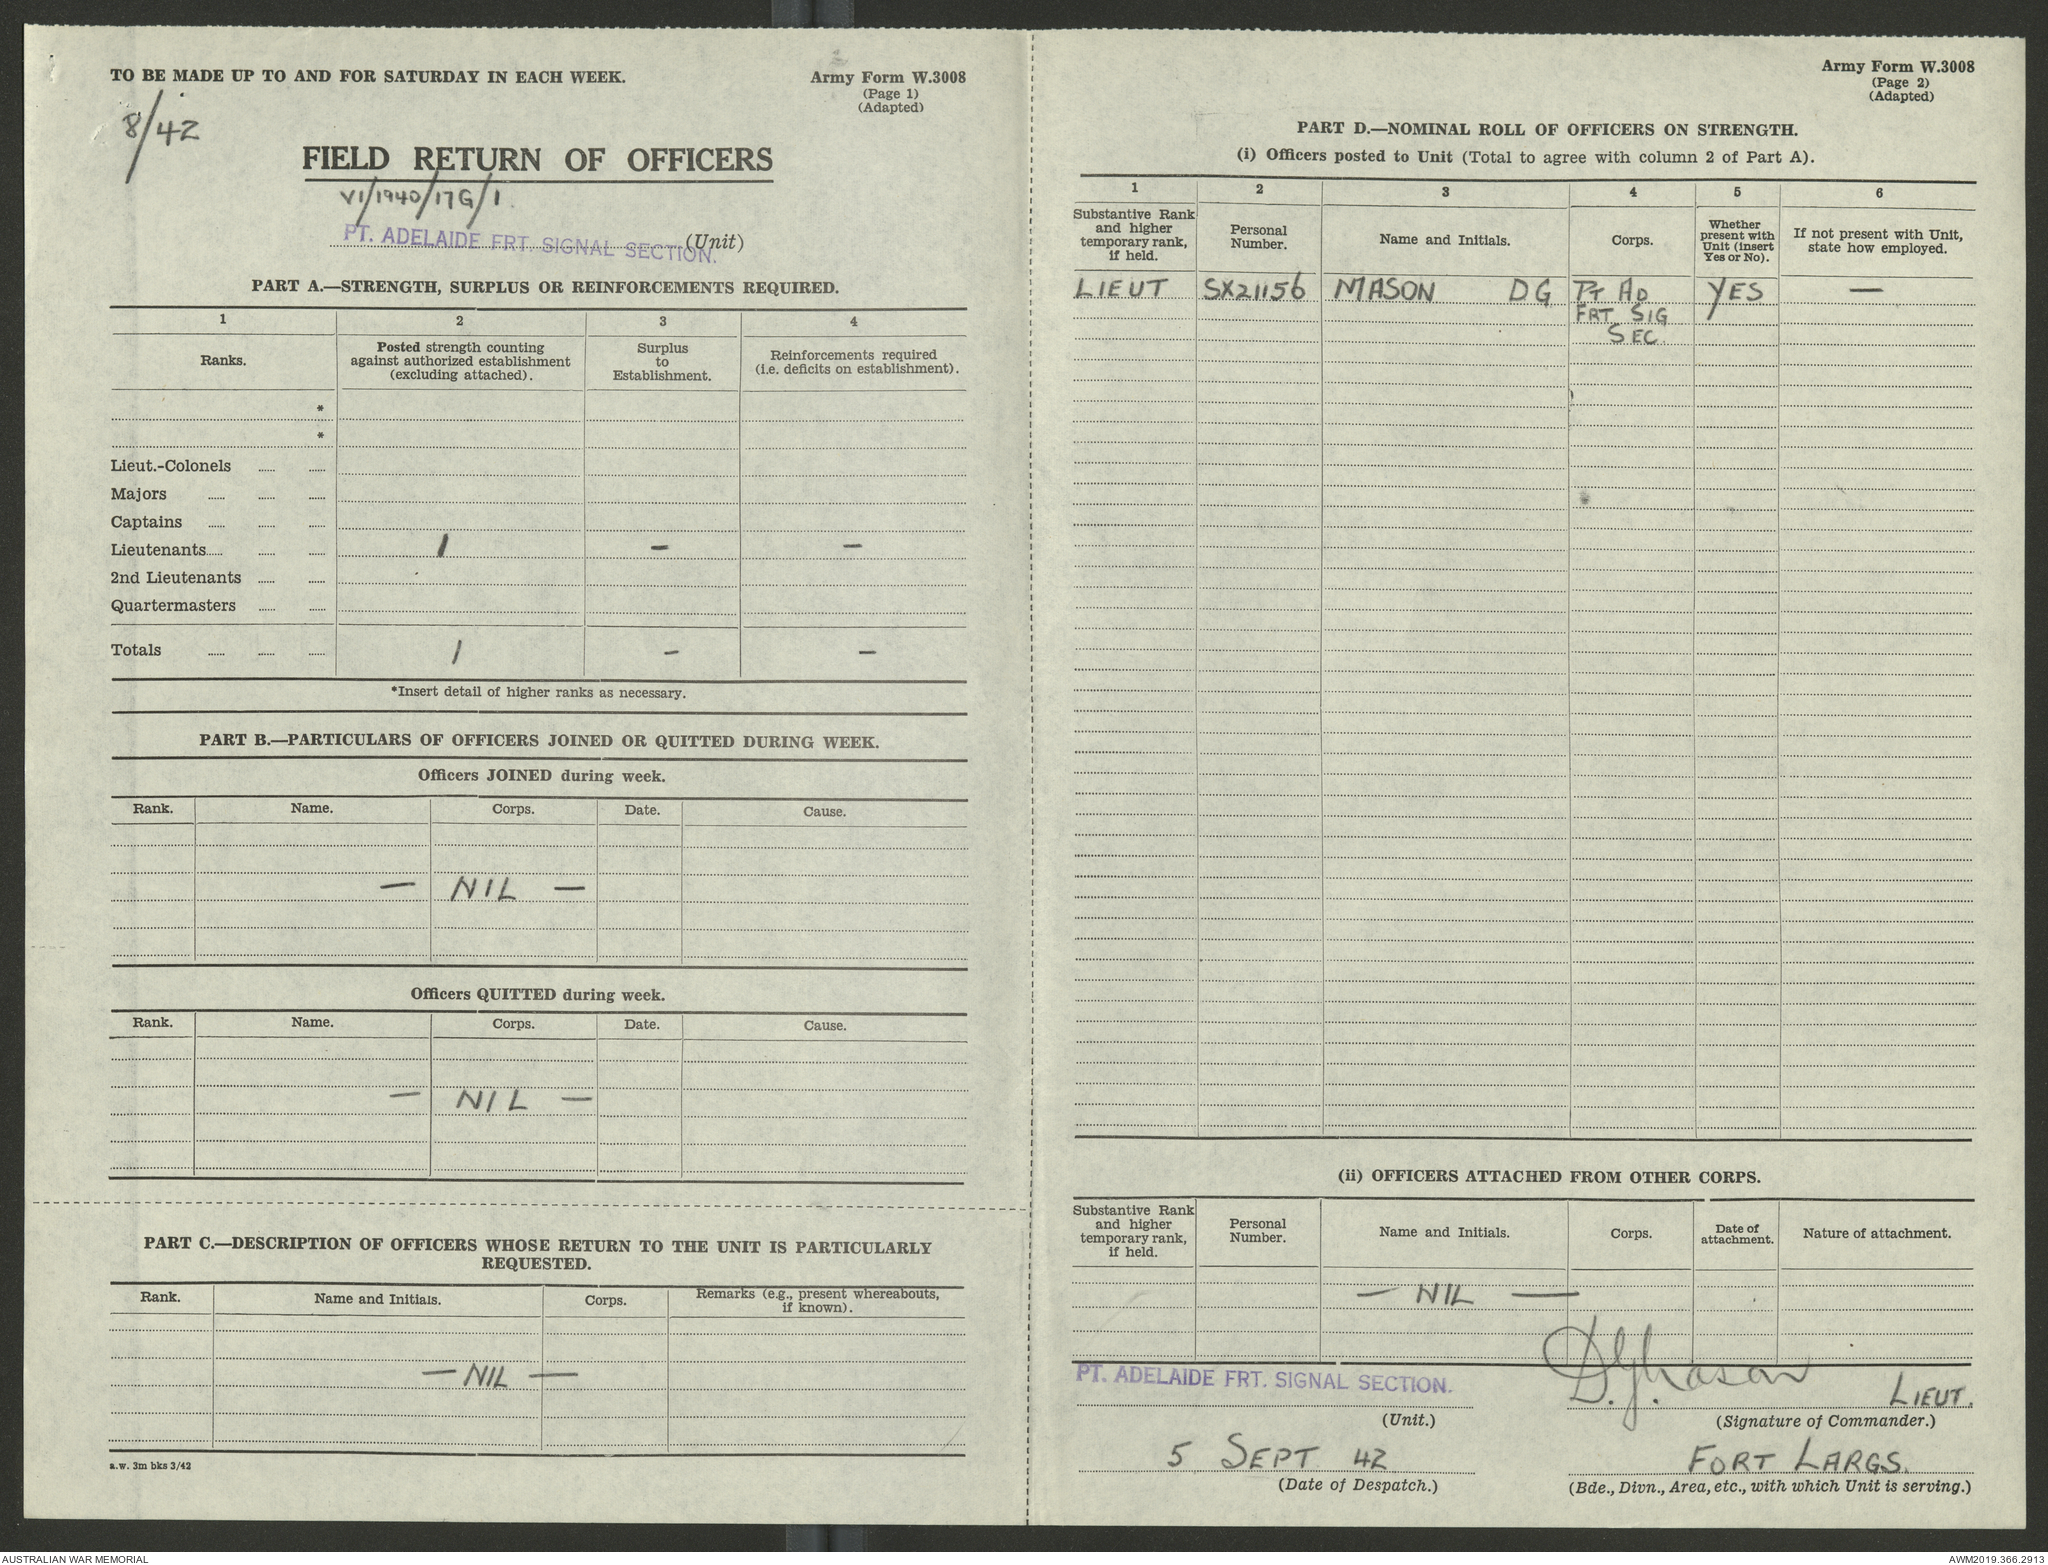 TO BE MADE UP TO AND FOR SATURDAY IN EACH WEEK.
Army Form W.3008
(Page 1)
(Adapted)
8/42
FIELD RETURN OF OFFICERS
VI/1940/17G/1
PT. ADELAIDE FRT. SIGNAL SECTION. (Unit)
PART A.—STRENGTH, SURPLUS OR REINFORCEMENTS REQUIRED.
1 2 3 4
Ranks.
Posted strength counting
against authorized establishment
(excluding attached).
Surplus
to
Establishment.
Reinforcements required
(i.e. deficits on establishment).
*
*
Lieut.-Colonels ...... ......
Majors ...... ...... ......
Captains ...... ...... ......
Lieutenants...... ...... ...... 1 — —
2nd Lieutenants ...... ......
Quartermasters ...... ......
Totals ...... ...... ...... 1 — —
*Insert detail of higher ranks as necessary.
PART B.—PARTICULARS OF OFFICERS JOINED OR QUITTED DURING WEEK.
Officers JOINED during week.
Rank. Name. Corps. Date. Cause.
— NIL —
Officers QUITTED during week.
Rank. Name. Corps. Date. Cause.
— NIL —
PART C.—DESCRIPTION OF OFFICERS WHOSE RETURN TO THE UNIT IS PARTICULARLY
REQUESTED.
Rank. Name and Initials. Corps.
Remarks (e.g., present whereabouts,
if known).
— NIL —
a.w. 3m bks 3/42
Army Form W.3008
(Page 2)
(Adapted)
PART D.—NOMINAL ROLL OF OFFICERS ON STRENGTH.
(i) Officers posted to Unit (Total to agree with column 2 of Part A).
1 2 3 4 5 6
Substantive Rank
and higher
temporary rank,
if held.
Personal
Number.
Name and Initials.
Corps.
Whether
present with
Unit (insert
Yes or No).
If not present with Unit,
state how employed.
LIEUT SX21156 MASON DG PT AD YES —
FRT SIG
SEC.
(ii) OFFICERS ATTACHED FROM OTHER CORPS.
Substantive Rank
and higher
temporary rank,
if held.
Personal
Number.
Name and Initials.
Corps.
Date of
attachment.
Nature of attachment.
— NIL —
PT. ADELAIDE FRT. SIGNAL SECTION.
(Unit.)
D.G. Mason LIEUT.
(Signature of Commander.)
5 SEPT 42
(Date of Despatch.)
FORT LARGS.
(Bde., Divn., Area, etc., with which Unit is serving.)
AUSTRALIAN WAR MEMORIAL
AWM2019.366.2913